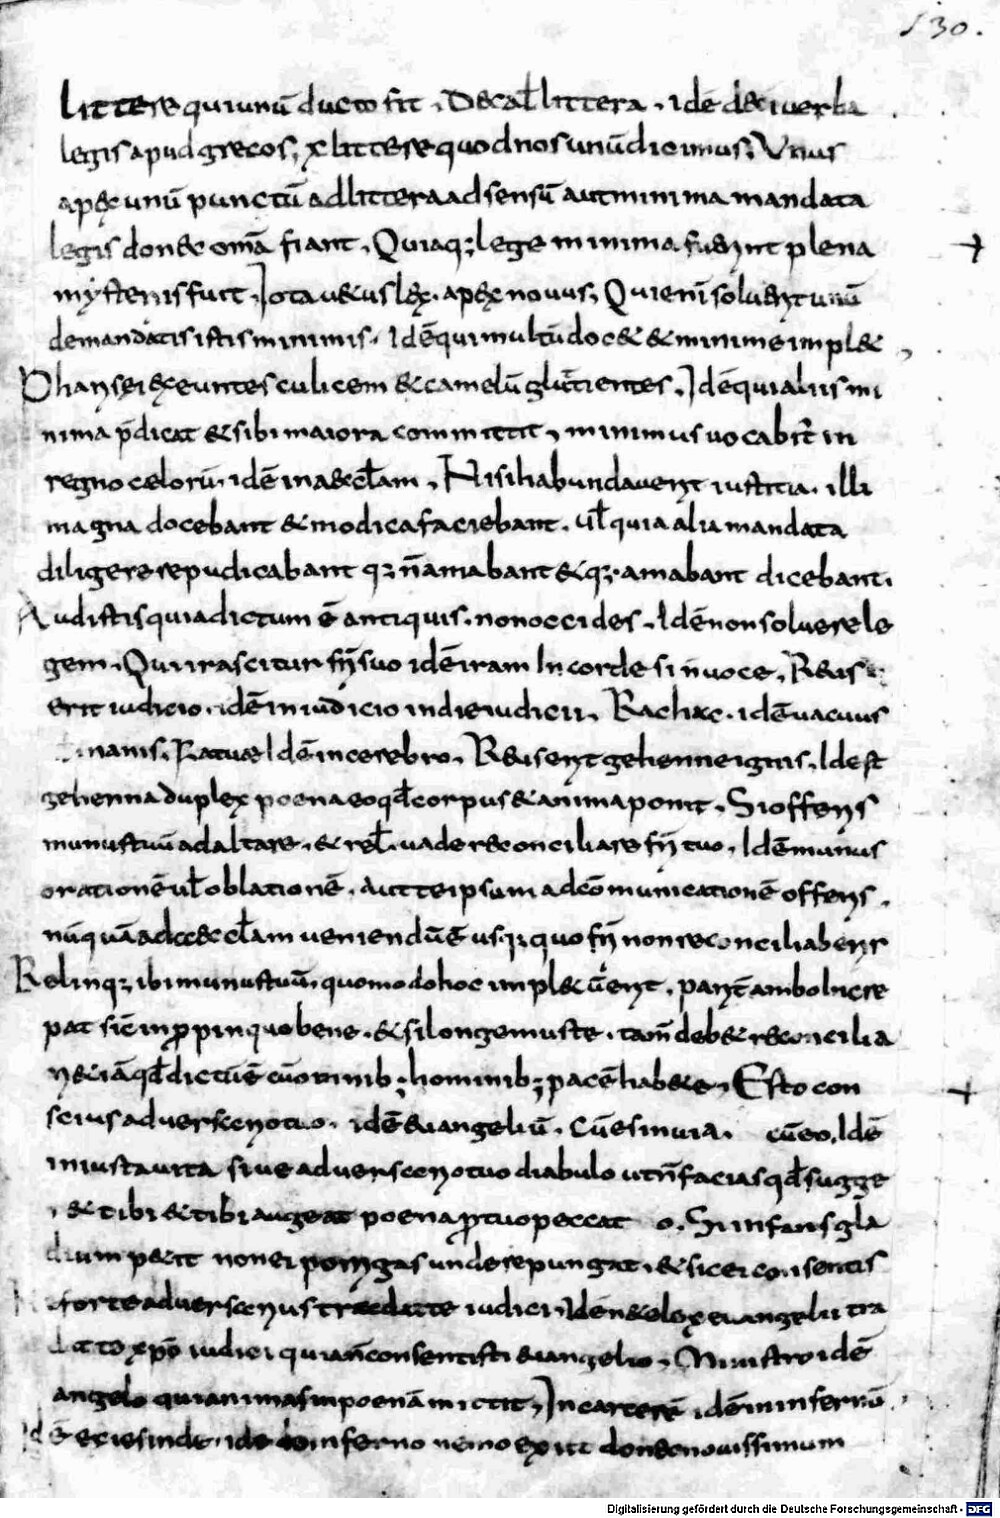 130.
littere qui unū ducto fit, Decal littera, idē decē verba
legis apud grecos; x littere quod nos unū dicimus; Unus
apex unū punctū ad littera ad sensū aut minima mandata
legis donec omā fiant, Quia q; lege minima fuerunt plena
mysteriis fuit, Iota uetus lex. apex nouus; Qui enī soluerit unū
de mandatis istis minimis. Idē qui multū docet & minime implet
Pharisei exeuntes culicem & camelū glutientes, Idē qui aliis mi
nima p̄dicat & sibi maiora committit, minimus uocabit̄ in
regno celorū. idē in aeccl̄am, Nisi habundauerit iustitia. illi
magna docebant & modica faciebant. ul̄ quia alia mandata
diligere repudicabant q; n̄ amabant & q; amabant dicebant.
Audistis quia dictum ē antiquis. non occides, Idē non soluere le
gem, Qui irascitur fr̄i suo idē iram in corde si n uoce, Reus
erit iudicio. idē in iudicio in die iudicii, Rachae. idē uacuus
inanis, Fatuae Idē in cerebro, Reus erit gehenne ignis, Id est
gehenna duplex poena eo qđ corpus & anima ponit, Si offeris
munus tuū ad altare, & rel̄. uade reconciliare fr̄i tuo, Idē munus
orationē ul̄ oblationē, aut te ipsum ad cōmunicationē offeris,
nūquā ad aeccl̄am ueniendū ē usq; quo fr̄i non reconciliaberis
Relinq; ibi munus tuū, quomodo hoc impleuerit, parit̄ ambolicere
pat sic in propinquo bene. & si longe miste. tam̄ debet reconcilia
ri & iā qđ dictū ē cū omnib; hominib; pacē habete, Esto con
sciius aduersario tuo. idē euangeliū. Cū es in uia. cū eo, Idē
in iusta uita siue aduersario tuo diabulo ut n̄ facias qđ sugge
& tibi & tibi augeat poena pro tuo peccat o. Si infans gla
dium petit non ei porrigas unde repungat, & sic ei consentis
forte aduersarius tradat te iudici, Idē n & lex euangelii tra
dit te xpō iudici quia n̄ consentisti euangelio, Ministro idē
angelo qui animas in poenā mittit, In carcerē idē in infernū,
idē exies inde. idē de inferno nemo exiit donec nouissimum
Digitalisierung gefördert durch die Deutsche Forschungsgemeinschaft - DFG